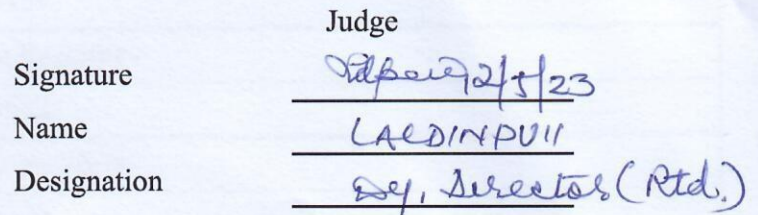 Judge
Signature 2/5/23
Name LALDINPUII
Designation Dy. Director (Rtd.)